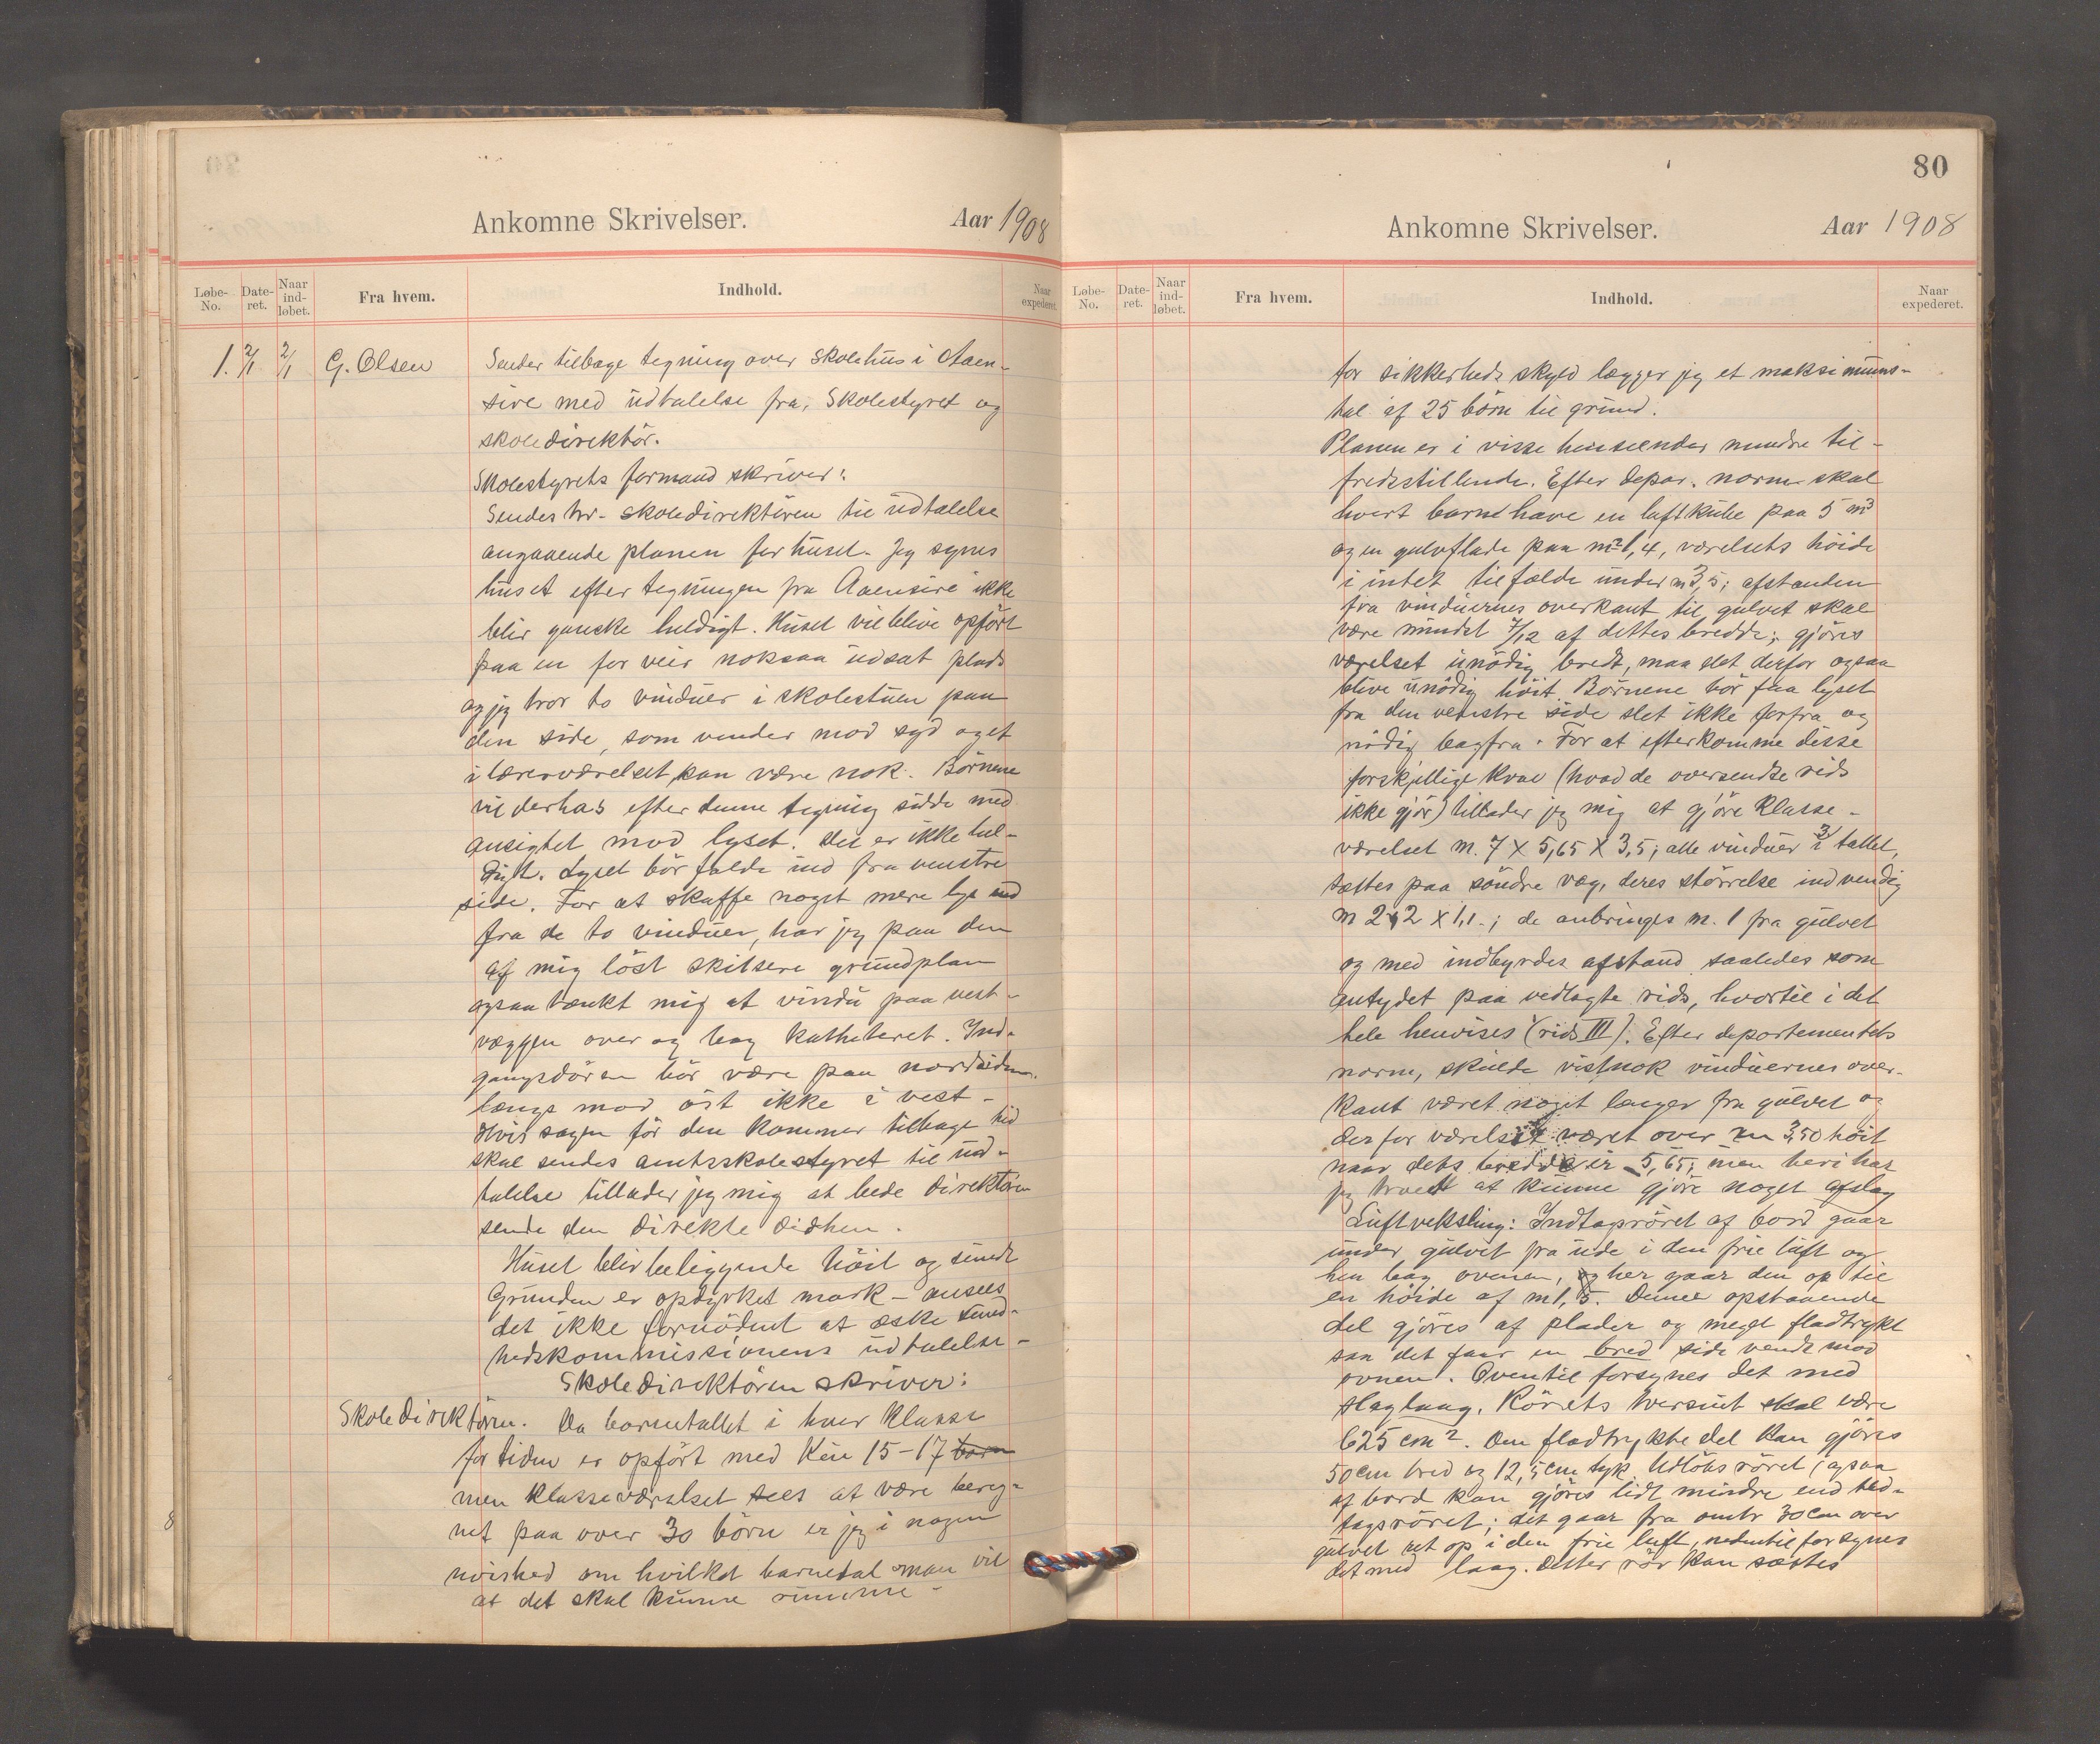 Ankomne Skrivelser.
Aar 1908
Løbe-No.
Date-ret.
Naar ind-løbet.
Fra hvem.
Indhold.
Naar expederet.
1. 2/1 2/1 G. Olsen
Sender tilbage tegning over skolehus i Aaen-
sire med udtalelse fra, Skolestyret og
skoledirektör.
Skolestyrets formand skriver:
Sendes hr. skoledirektören til udtalelse
angaaende planen for huset. Jeg synes
huset efter tegningen fra Aaensire ikke
blir ganske heldigt. Huset vil blive opfört
paa en for veir noksaa udsat plads
og jeg tror to vinduer i skolestuen paa
den side, som vender mod syd og et
i lærerværelset, kan være nok. Börnene
vil derhos efter denne tegning sidde med
ansigtet mod lyset. Det er ikke hel-
digt. Lyset bör falde ind fra venstre
side. For at skaffe noget mere lys end
fra de to vinduer, har jeg paa den
af mig löst skitsere grundplan
ogsaa tænkt mig et vindu paa vest-
væggen over og bag katheteret. Ind-
gangsdören bör være paa nordsiden
længs mod öst ikke i vest-
Hvis sagen för den kommer tilbage hid
skal sendes amtsskolestyret til ud-
talelse tillader jeg mig at bede direktören
sende den direkte didhen.
Huset blir beliggende höit og sundt
Grunden er opdyrket mark - ansees
det ikke fornödent at æske sund-
hedskommissionens udtalelse -
Skoledirektören skriver:
Skoledirektören. Da barnetallet i hver klasse
for tiden er opfört med kun 15-17 börn
men klasseværelset sees at være bereg-
net paa over 30 börn er jeg i nogen
uvished om hvilket barnetal man vil
at det skal kunne rumme -
80
Ankomne Skrivelser.
Aar 1908
Løbe-No.
Date-ret.
Naar ind-løbet.
Fra hvem.
Indhold.
Naar expederet.
for sikkerheds skyld lægger jeg et maksimums-
tal af 25 börn til grund.
Planen er i visse henseender mindre til-
fredsstillende. Efter depar. norm skal
hvert barn have en luftkube paa 5 m3
og en gulvflade paa m2 1,4, værelsets höide
i intet tilfælde under m 3,5; afstanden
fra vinduernes overkant til gulvet skal
være mindst 7/12 af dettes bredde; gjöres
værelset unödig bredt, maa det derfor ogsaa
blive unödig höit. Börnene bör faa lyset
fra den venstre side slet ikke forfra og
nödig bagfra. For at efterkomme disse
forskjellige krav (hvad de oversendte rids
ikke gjör) tillader jeg mig at gjöre klasse-
værelset m. 7 X 5,65 X 3,5; alle vinduer 3 i tallet,
sættes paa söndre væg, deres störrelse indvendig
m 2,2 x 1,1.; de anbringes m. 1 fra gulvet
og med indbyrdes afstand saaledes som
antydet paa vedlagte rids, hvortil i det
hele henvises (rids III). Efter departementets
norm, skulde vistnok vinduernes over-
kant været noget længer fra gulvet og
derfor værelset været over m 3,50 höit
naar dets bredde er 5,65; men heri har
jeg troet at kunne gjöre noget afslag
Luftveksling: Indtagsröret af bord gaar
under gulvet fra ude i den frie luft og
hen bag ovnen, og her gaar den op til
en höide af m 1,5. Denne opstaaende
del gjöres af plader og meget fladtrykt
saa det faar en bred side vendt mod
ovnen. Oventil forsynes det med
slaglaag. Rörets tversnit skal være
625 cm2. Den fladtrykte del kan gjöres
50 cm bred og 12,5 cm tyk. Udlöbsröret (ogsaa
af bord kan gjöres lidt mindre end ind-
tagsröret; det gaar fra omtr 30 cm over
gulvet ret op i den frie luft, nedentil forsynes
det med laag. Dette rör kan sættes